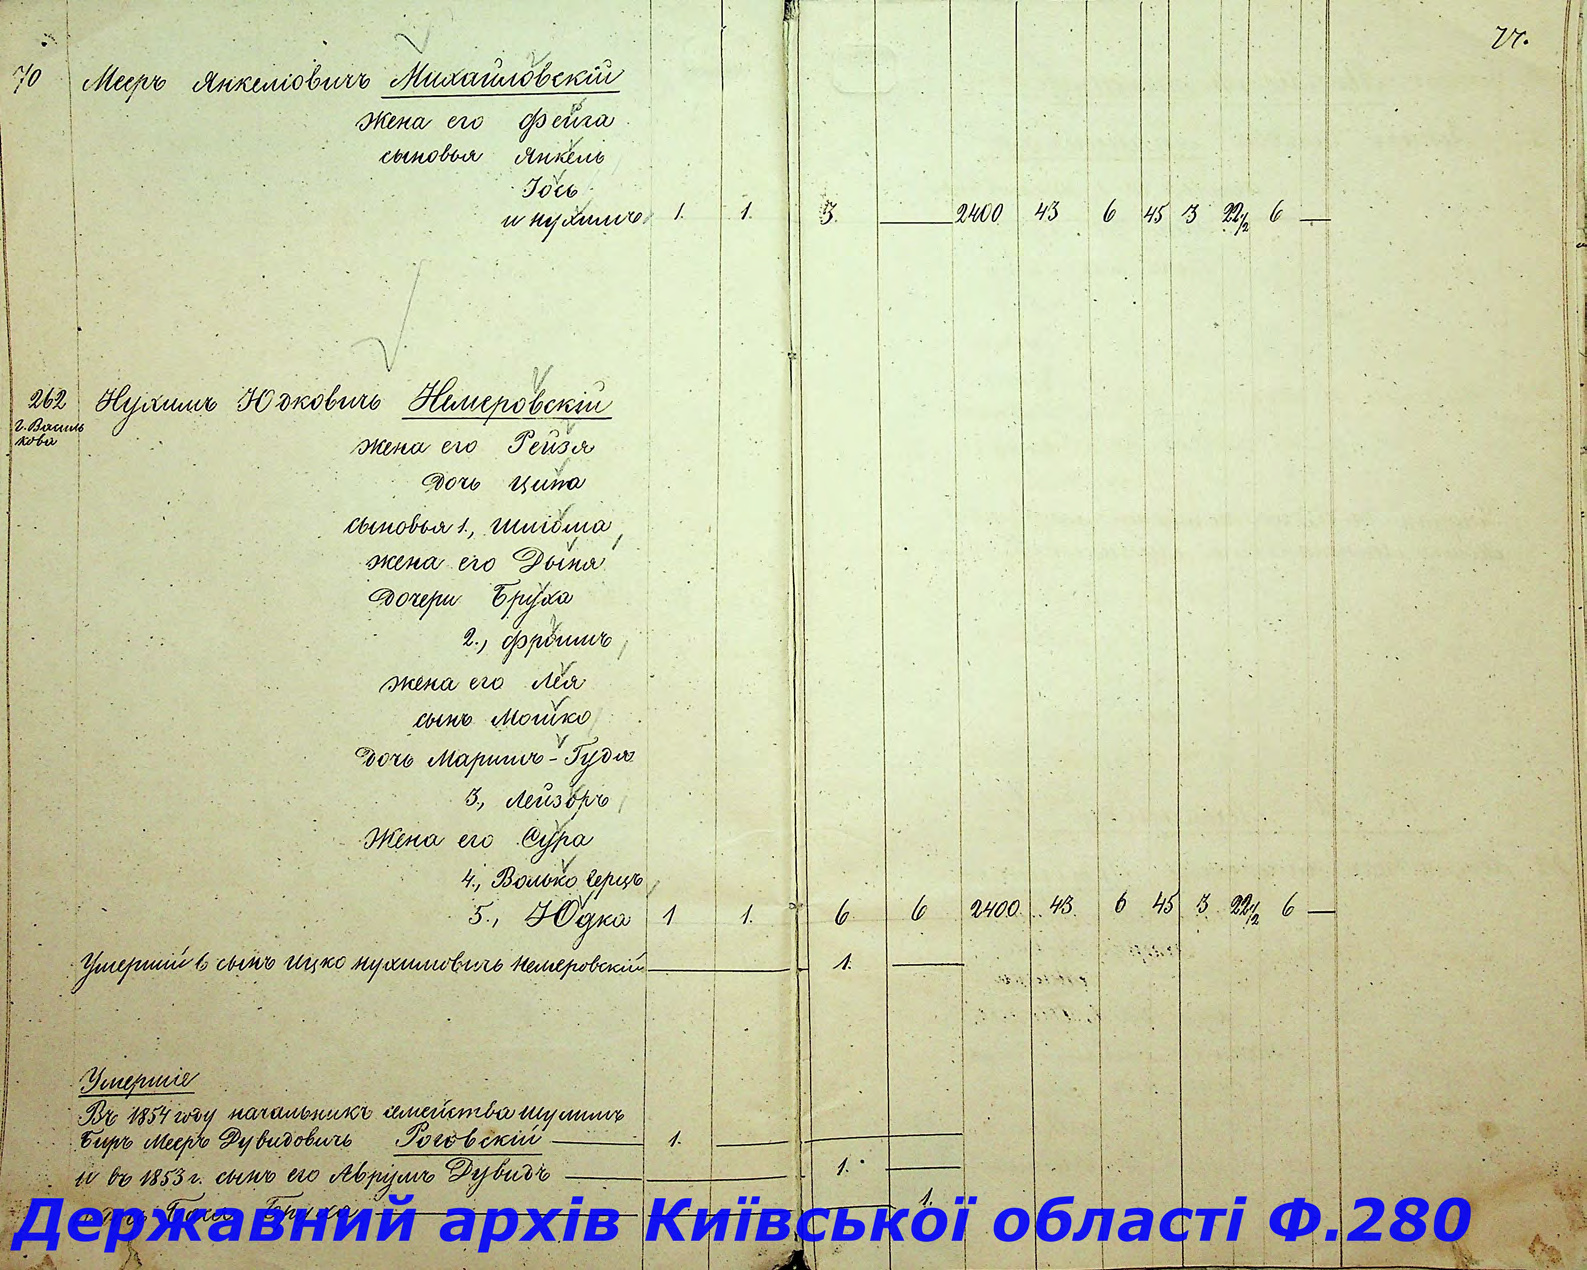 77.
70 Мееръ Янкеліовичъ Михайловскій
жена его Фейга
сыновья Янкель
Іось
и Нухимъ 1. 1. 3. — 2400 43 6 45 3 22½ 6 —
262 Нухимъ Юдковичъ Немеровскій
г. Василь
кова
жена его Рейзя
Дочь Ципа
сыновья 1., Шліома
жена его Дыня
Дочери Бруха
2., Фроимъ
жена его Лея
сынъ Мошко
Дочь Маримъ-Гудя
3., Лейзоръ
Жена его Сура
4., Волько Герцъ
5., Юдка 1 1. 6 6 2400 43 6 45 3 22½ 6 —
Умершій 6 сынъ Ицко Нухимовичъ Немеровскій — 1. —
Умершіе
Въ 1854 году начальникъ семейства Шулимъ
Биръ Мееръ Дувидовичъ Роговскій — 1. —
и въ 1853 г. сынъ его Аврумъ Дувидъ — 1. —
Бруха — 1.
Державний архів Київської області Ф.280